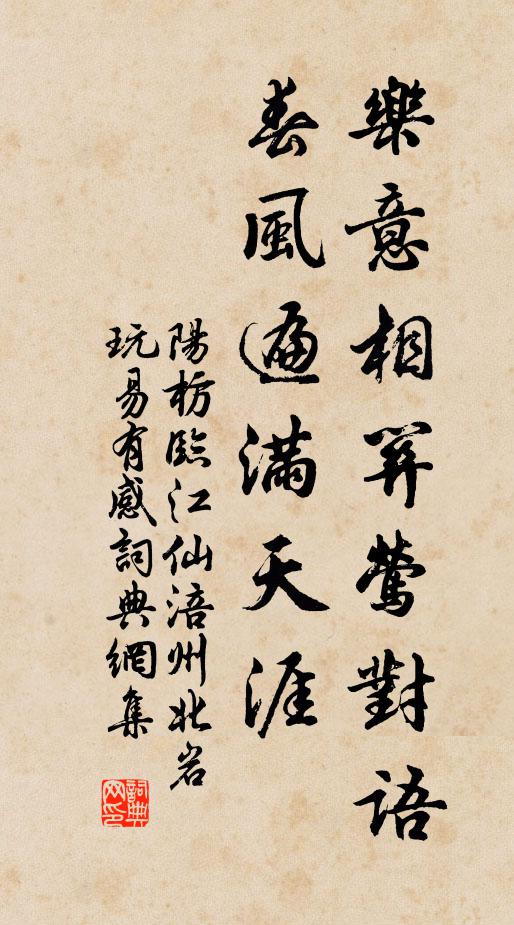 樂意相關鶯對語
春風遍滿天涯
陽枋臨江仙涪州北岩
玩易有感詞典網集
詞典
网印